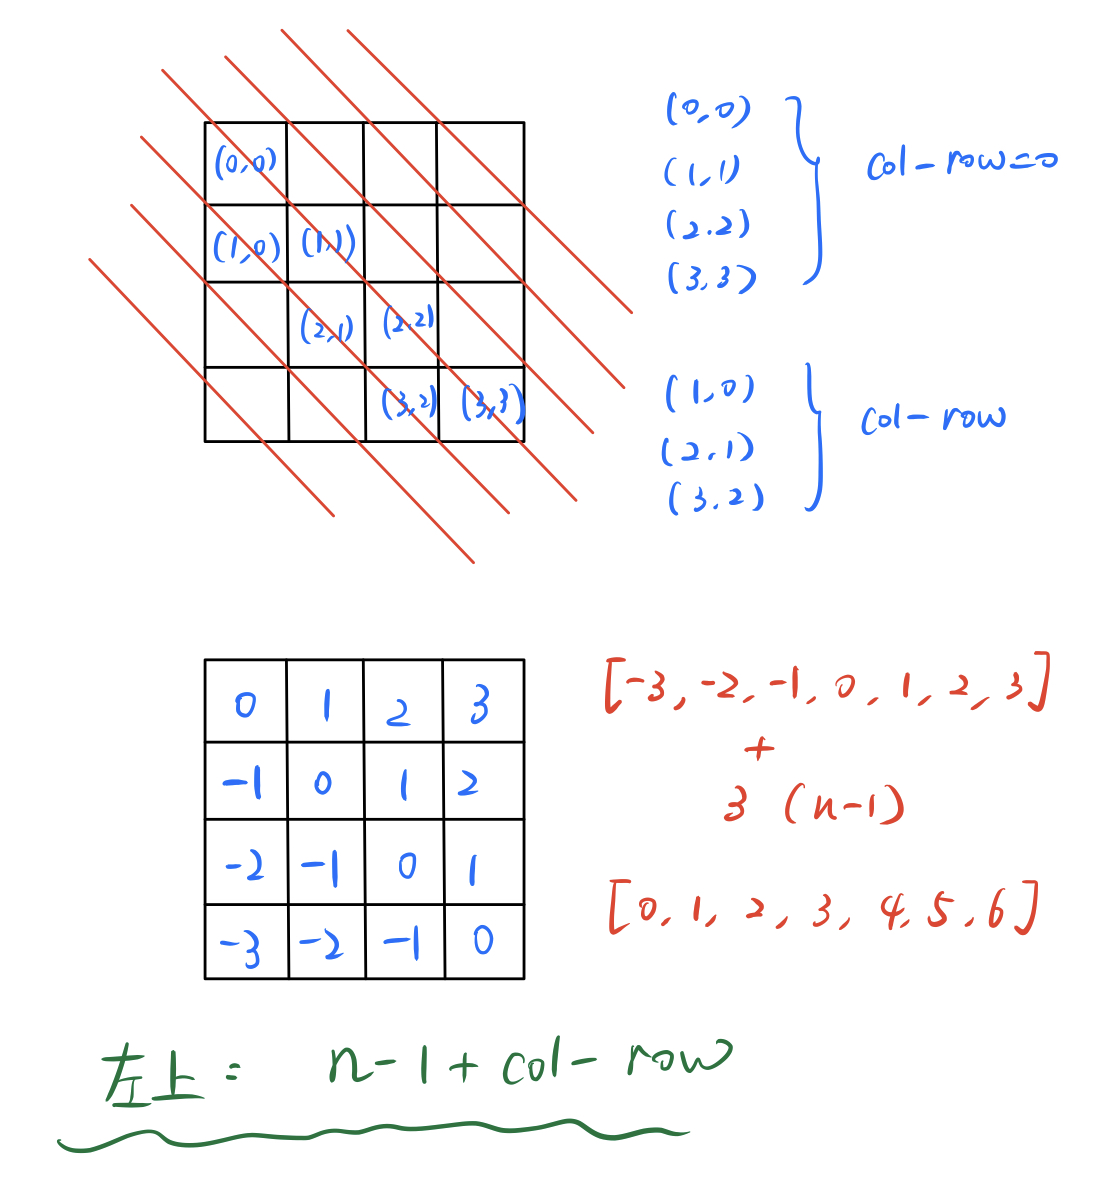 (0,0)
(1,0) (1,1)
(2,1) (2.2)
(3,2) (3,3)
(0,0)
(1,1)
(2.2)
(3,3)
col-row=0
(1,0)
(2.1)
(3.2)
col-row
0 1 2 3
-1 0 1 2
-2 -1 0 1
-3 -2 -1 0
[-3,-2,-1,0,1,2,3]
+
3 (n-1)
[0,1,2,3,4,5,6]
左上: n-1+col-row